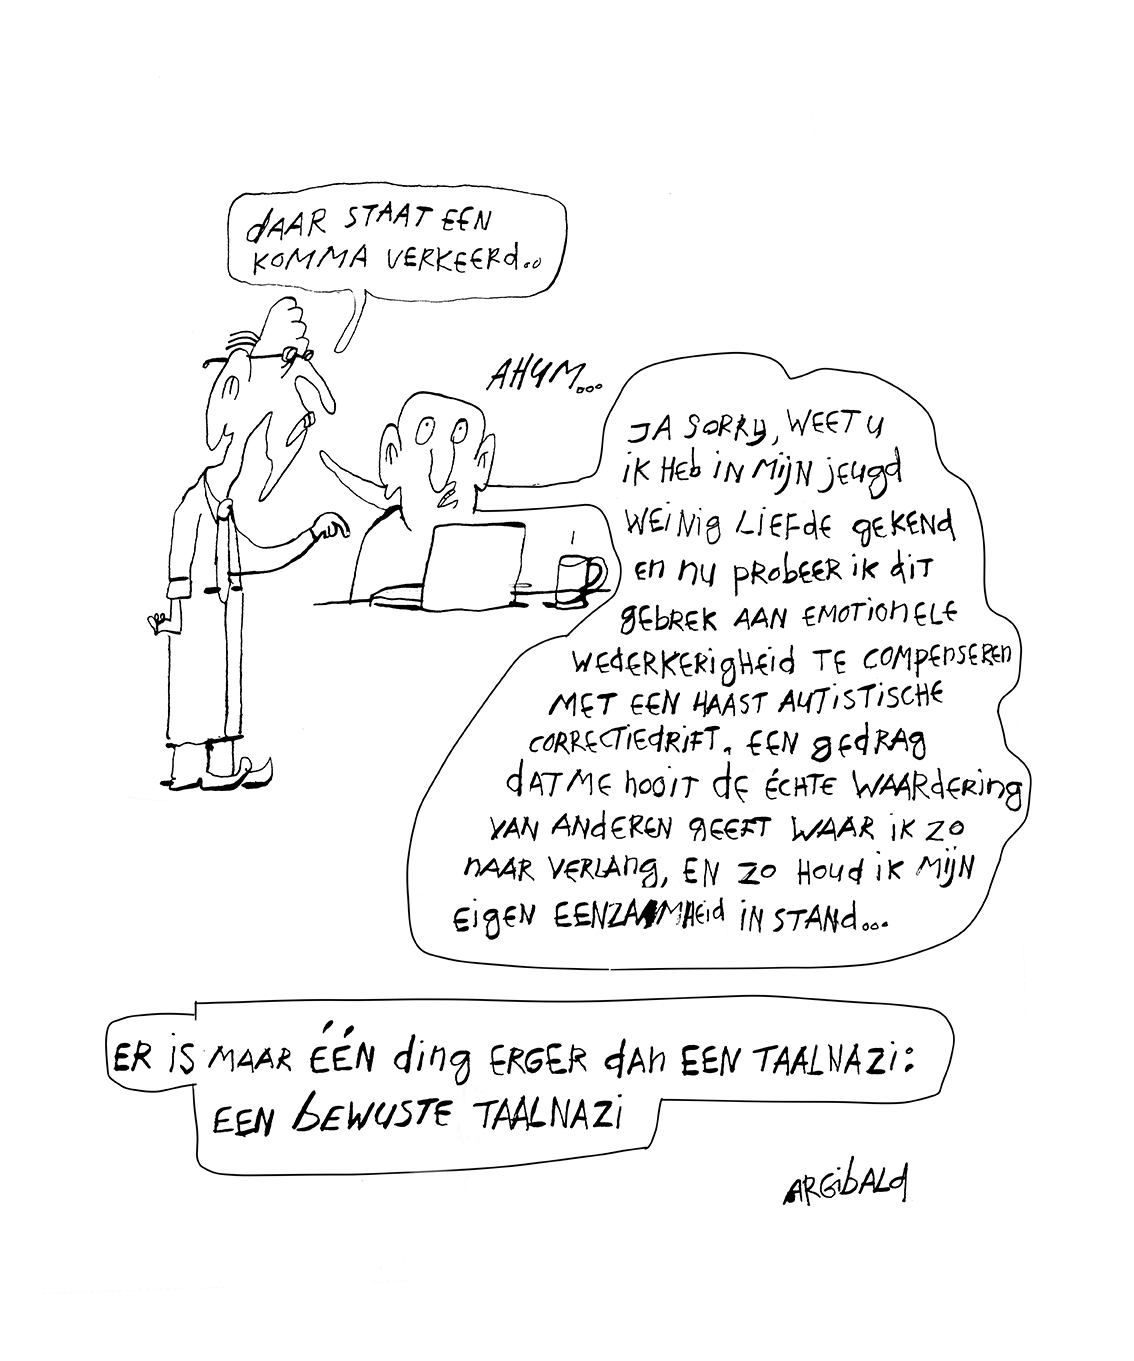 DAAR STAAT EEN
KOMMA VERKEERD..
AHUM...
JA SORRY, WEET U
IK HEB IN MIJN JEUGD
WEINIG LIEFDE GEKEND
EN NU PROBEER IK DIT
GEBREK AAN EMOTIONELE
WEDERKERIGHEID TE COMPENSEREN
MET EEN HAAST AUTISTISCHE
CORRECTIEDRIFT, EEN GEDRAG
DAT ME NOOIT DE ÉCHTE WAARDERING
VAN ANDEREN GEEFT WAAR IK ZO
NAAR VERLANG, EN ZO HOUD IK MIJN
EIGEN EENZAAMHEID IN STAND...
ER IS MAAR ÉÉN DING ERGER DAN EEN TAALNAZI:
EEN BEWUSTE TAALNAZI
ARGIBALD